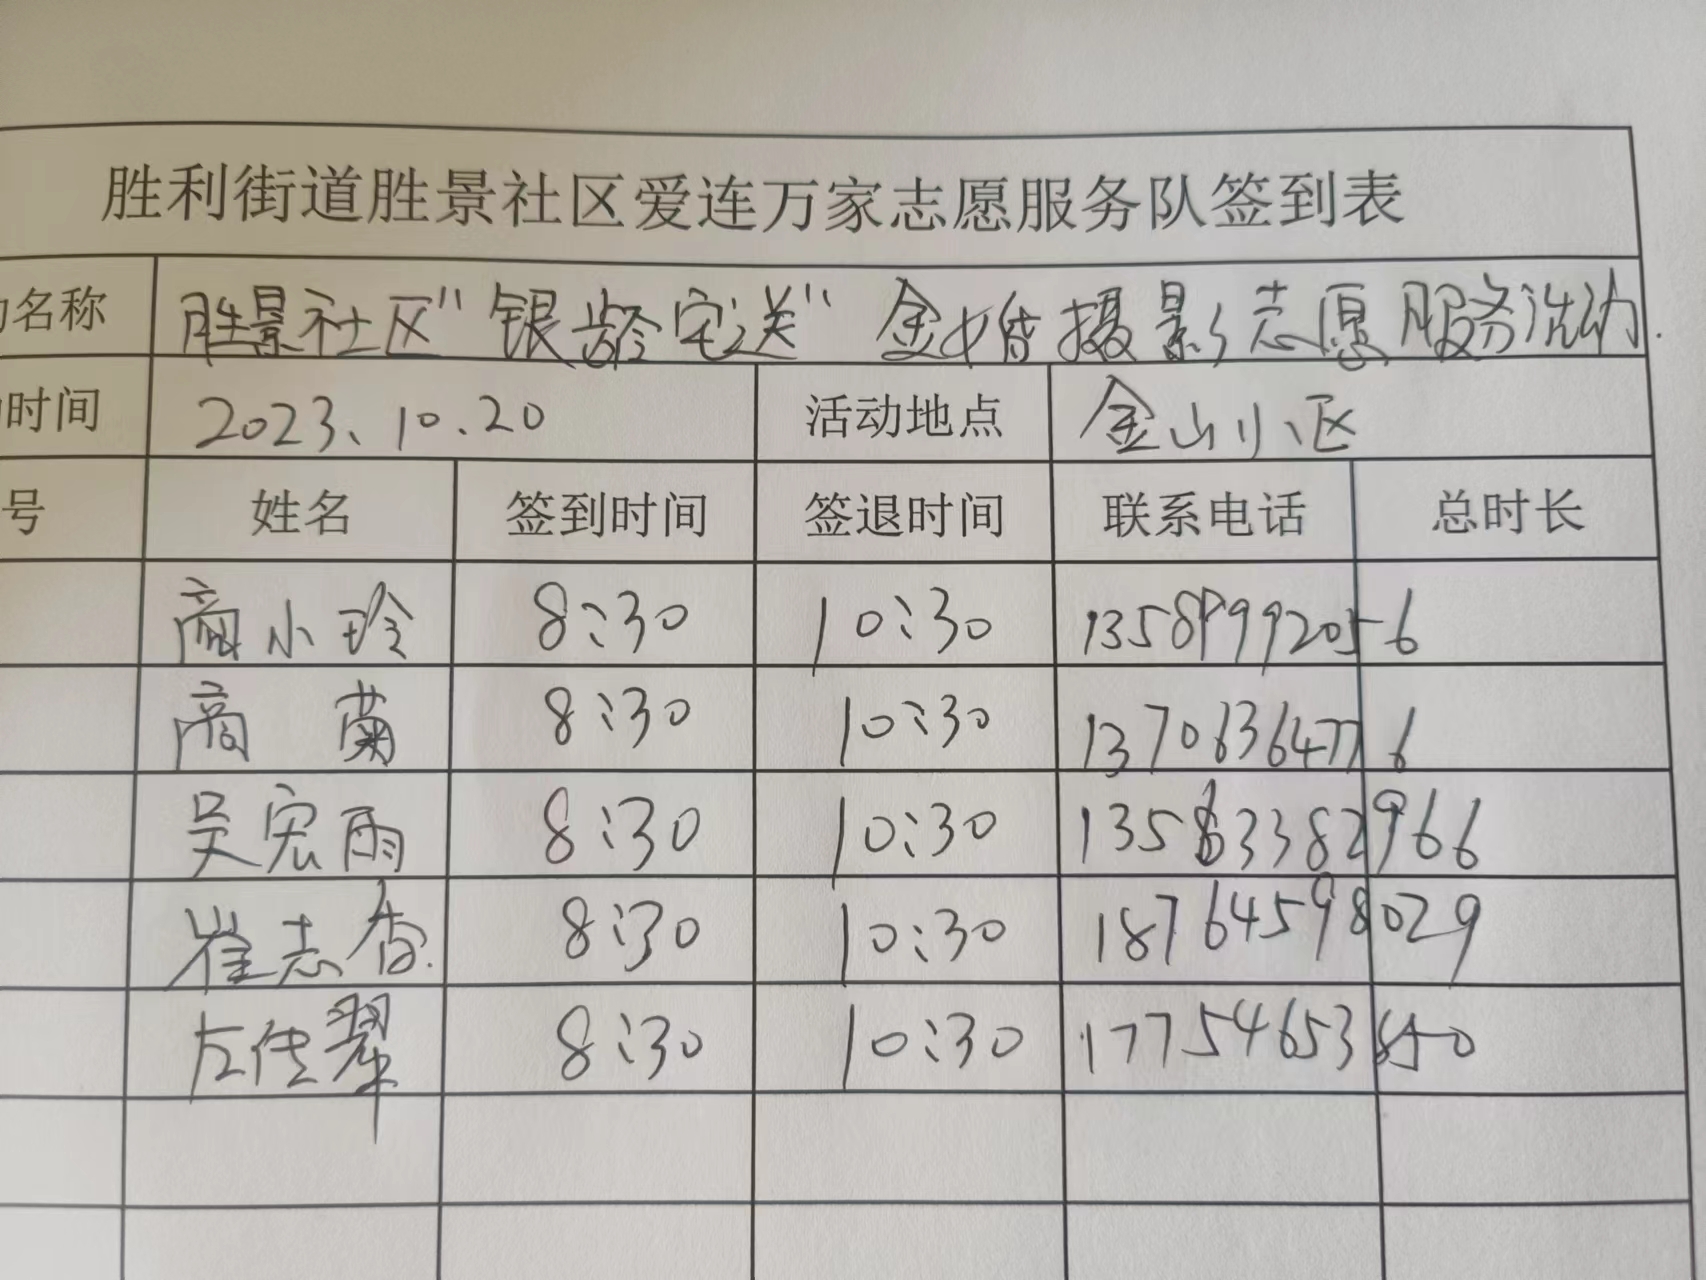 胜利街道胜景社区爱连万家志愿服务队签到表
动名称 胜景社区"银龄宅送"金婚摄影志愿服务活动.
时间 2023、10.20 活动地点 金山小区
号 姓名 签到时间 签退时间 联系电话 总时长
商小玲 8:30 10:30 13589992056
商菊 8:30 10:30 13706364776
吴宏雨 8:30 10:30 13583382966
崔志香. 8:30 10:30 18764598029
左佳翠 8:30 10:30 17754653850